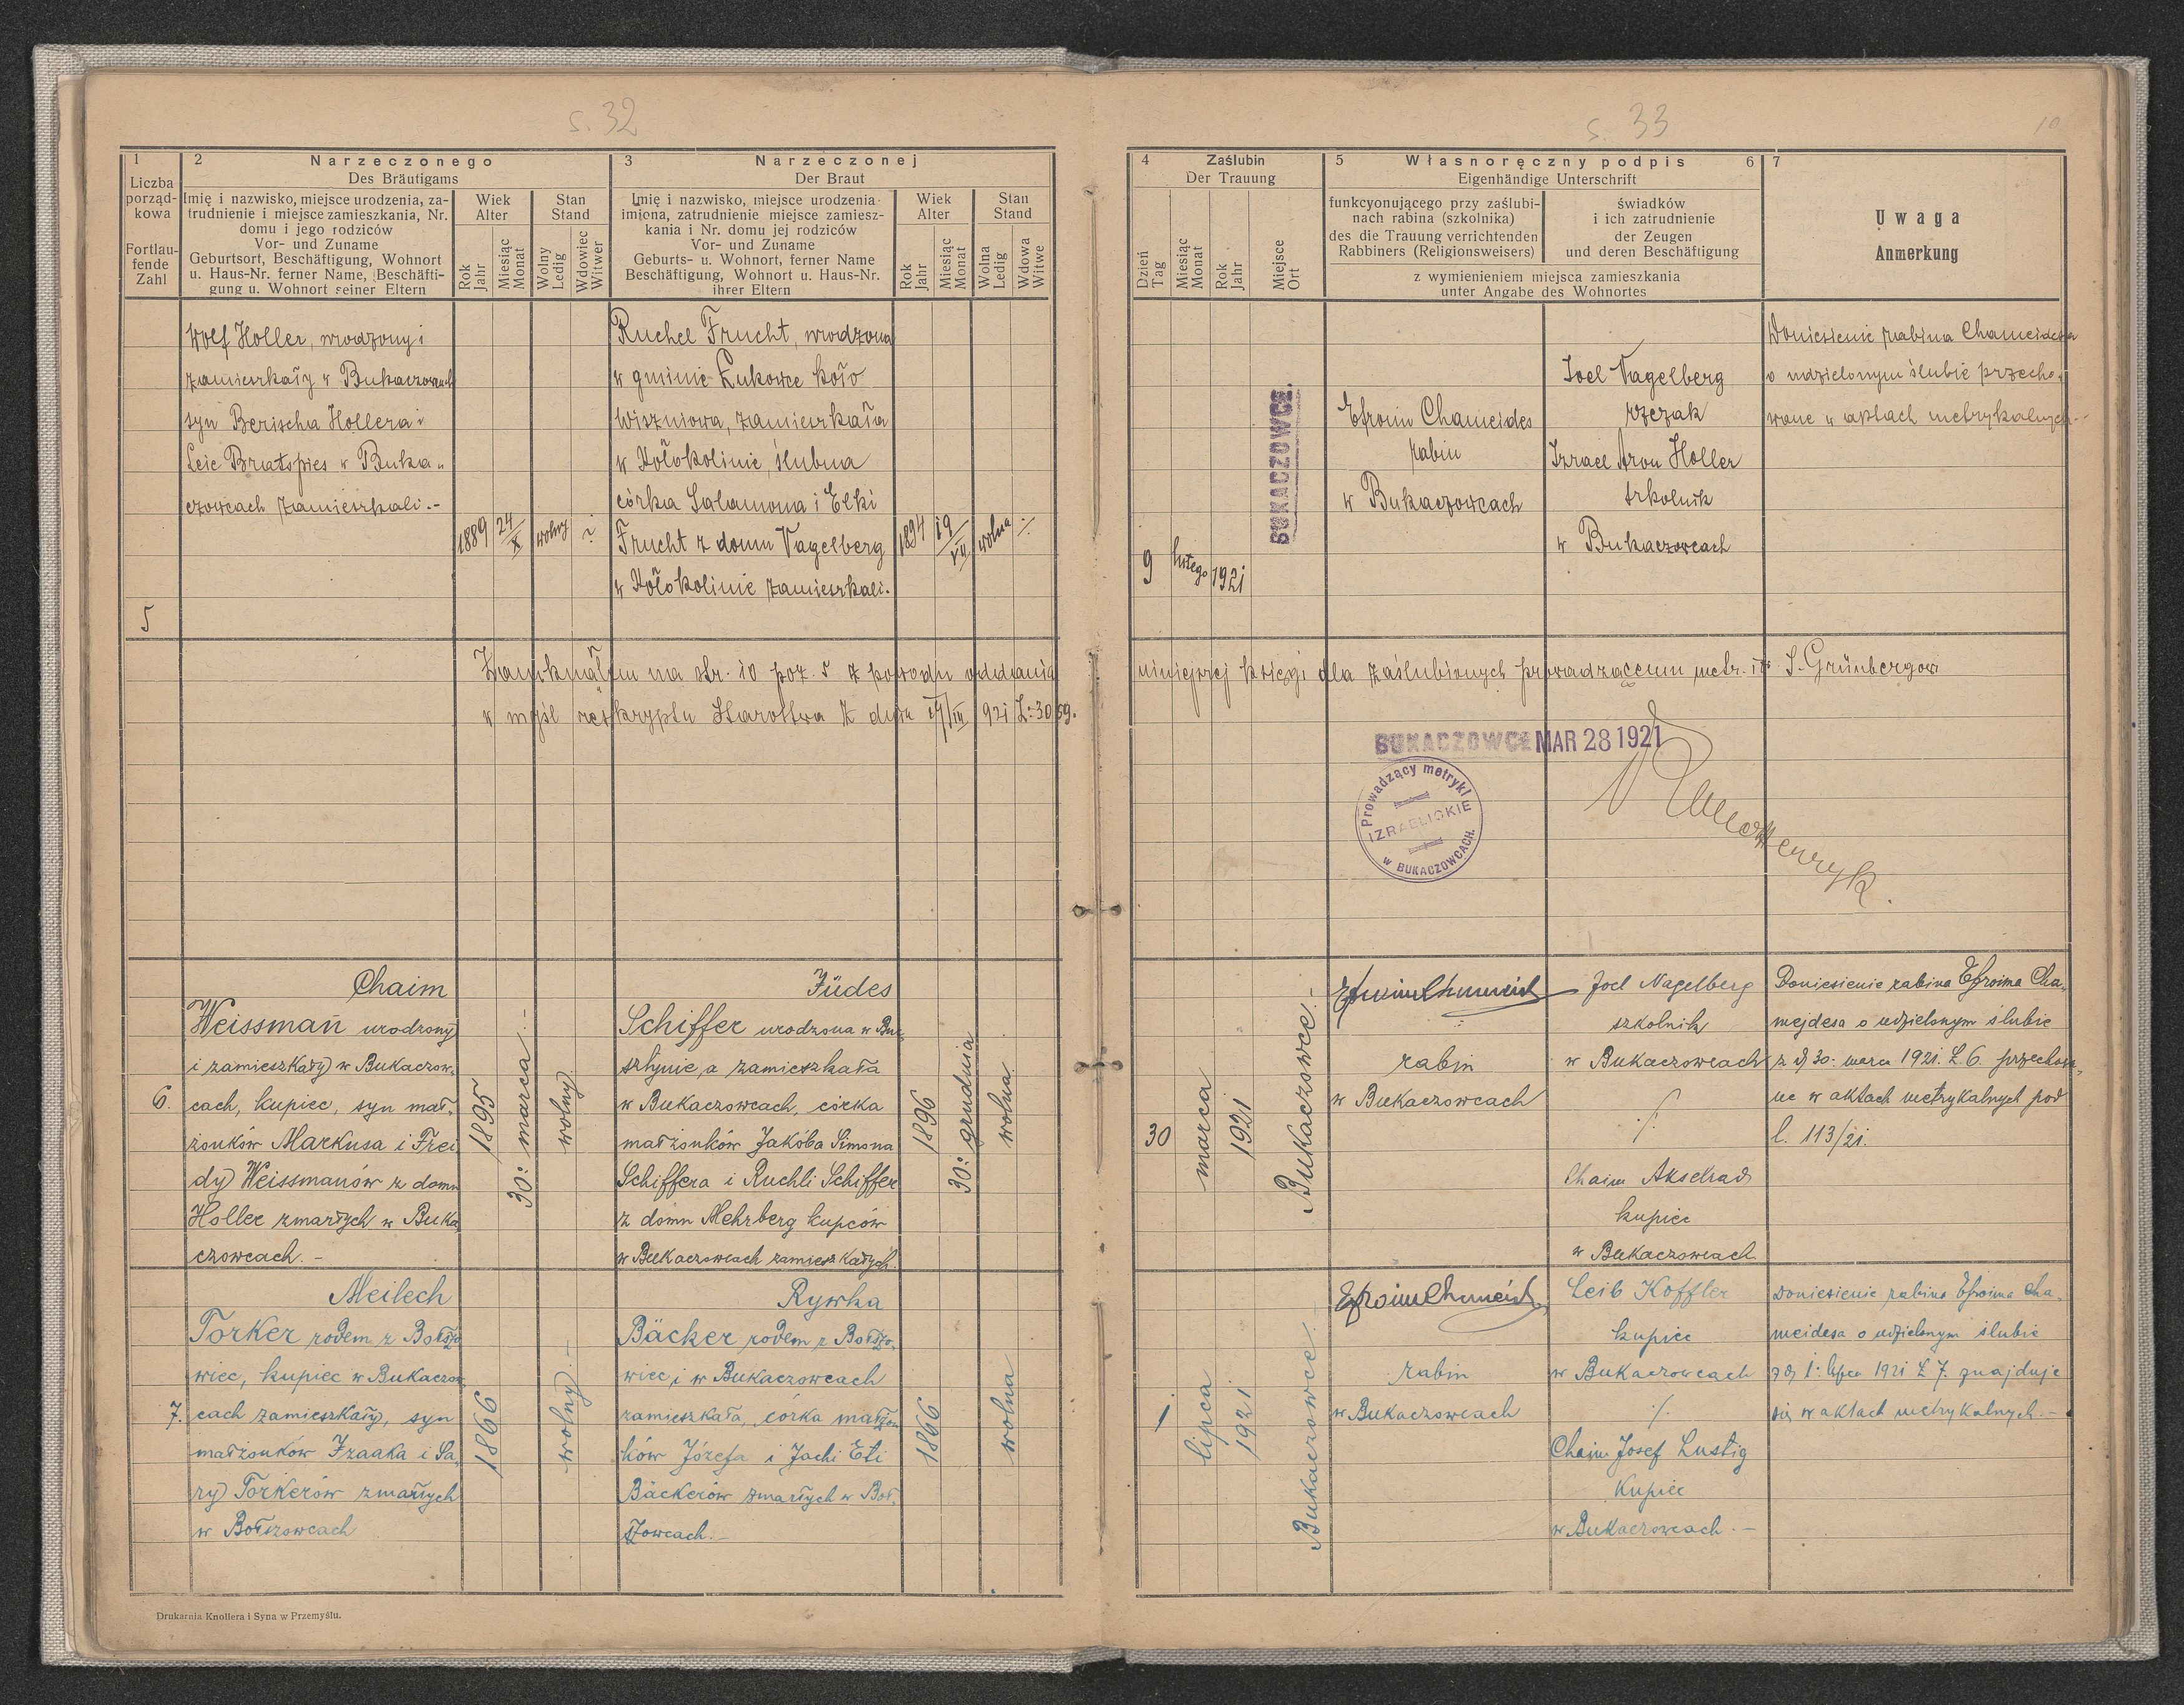 s. 32
1
Liczba
porząd-
kowa
Fortlau-
fende
Zahl
2 Narzeczonego
Des Bräutigams
Imię i nazwisko, miejsce urodzenia, za-
trudnienie i miejsce zamieszkania, Nr.
domu i jego rodziców
Vor- und Zuname
Geburtsort, Beschäftigung, Wohnort
u. Haus-Nr. ferner Name, Beschäfti-
gung u. Wohnort seiner Eltern
Wiek
Alter
Rok
Jahr
Miesiąc
Monat
Stan
Stand
Wolny
Ledig
Wdowiec
Witwer
3 Narzeczonej
Der Braut
Imię i nazwisko, miejsce urodzenia
imiona, zatrudnienie miejsce zamiesz-
kania i Nr. domu jej rodziców
Vor- und Zuname
Geburts- u. Wohnort, ferner Name
Beschäftigung, Wohnort u. Haus-Nr.
ihrer Eltern
Wiek
Alter
Rok
Jahr
Miesiąc
Monat
Stan
Stand
Wolna
Ledig
Wdowa
Witwe
5
Wolf Holler, urodzony i
zamieszkały w Bukaczowcach
syn Berischa Hollera i
Leie Bratspies w Buka-
czowcach zamieszkali.-
1889
24/X
wolny
Ruchel Frucht, urodzona
w gminie Łukowce koło
Wiszniowa, zamieszkała
w Kołokolinie, ślubna
córka Salamona i Elki
Frucht z domu Nagelberg
w Kołokolinie zamieszkali.
1894
19/VII
wolna
Zamknąłem na str. 10 poz. 5 z powodu oddania
w myśl reskryptu Starostwa z dnia 921 L: 3059.
6.
Chaim
Weissman urodzony
i zamieszkały w Bukaczow-
cach, kupiec, syn mał-
żonków Markusa i Frei
dy Weissmanów z domu
Holler zmarłych w Buka
czowcach.-
1895
30: marca.-
wolny
Jüdes
Schiffer urodzona w Bur-
sztynie, a zamieszkała
w Bukaczowcach, córka
małżonków Jakóba Simona
Schiffera i Ruchli Schiffer
z domu Mehrberg kupców
w Bukaczowcach zamieszkałych.
1896
30: grudnia
wolna
7.
Meilech
Torker rodem z Bołszo
wiec, kupiec w Bukaczow
cach zamieszkały, syn
małżonków Izaaka i Sa-
ry Torkerów zmarłych
w Bołszowcach
1866
wolny.-
Rywka
Bäcker rodem z Bołszo-
wiec i w Bukaczowcach
zamieszkała, córka małżon
ków Józefa i Jachi Eti
Bäckerów zmarłych w Boł-
szowcach.-
1866
wolna
Drukarnia Knollera i Syna w Przemyślu.
s. 33
10
4 Zaślubin
Der Trauung
Dzień
Tag
Miesiąc
Monat
Rok
Jahr
Miejsce
Ort
5 Własnoręczny podpis 6
Eigenhändige Unterschrift
funkcyonującego przy zaślubi-
nach rabina (szkolnika)
des die Trauung verrichtenden
Rabbiners (Religionsweisers)
świadków
i ich zatrudnienie
der Zeugen
und deren Beschäftigung
z wymienieniem miejsca zamieszkania
unter Angabe des Wohnortes
7
Uwaga
Anmerkung
9
lutego
1921
BUKACZOWCE.
Efroim Chameides
rabin
w Bukaczowcach
Joel Nagelberg
rzezak
Izrael Aron Holler
szkolnik
w Bukaczowcach
Doniesienie rabina Chameidesa
o udzielonym ślubie przecho-
wane w aktach metrykalnych.-
niniejszej księgi dla zaślubionych prowadzącemu metr. izr. S. Grünbergowi
BUKACZOWCE MAR 28 1921
Prowadzący metryki
IZRAELICKIE
w BUKACZOWCACH.
30
marca
1921
Bukaczowce.-
rabin
w Bukaczowcach
Joel Nagelberg
szkolnik
w Bukaczowcach
./.
Chaim Akselrad
kupiec
w Bukaczowcach
Doniesienie rabina Efroima Cha-
mejdesa o udzielonym ślubie
z d 30. marca 1921. L. 6. przechowa-
ne w aktach metrykalnych pod
l. 113/21.
1
lipca
1921
Bukaczowce.-
rabin
w Bukaczowcach
Leib Koffler
kupiec
w Bukaczowcach
./.
Chaim Josef Lustig
Kupiec
w Bukaczowcach.-
Doniesienie rabina Efroima Cha-
meidesa o udzielonym ślubie
z d 1: lipca 1921 L 7. znajduje
się w aktach metrykalnych.-